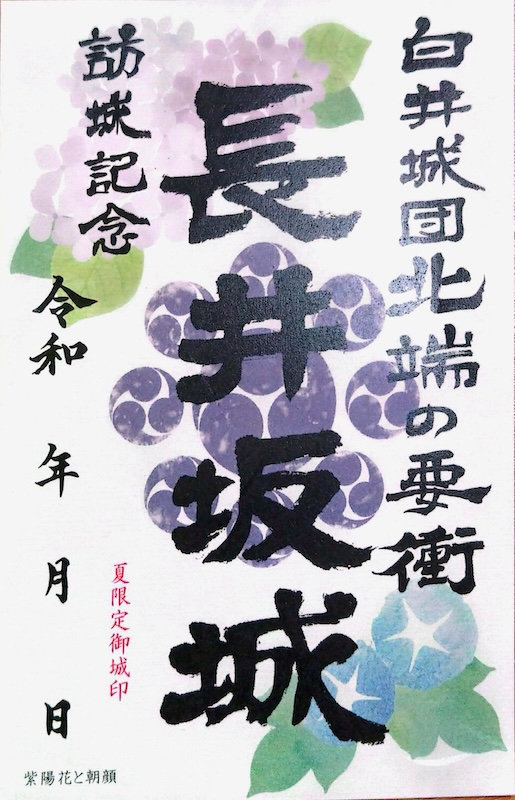 白井城団北端の要衝
長井坂城
訪城記念
令和 年 月 日
夏限定御城印
紫陽花と朝顔